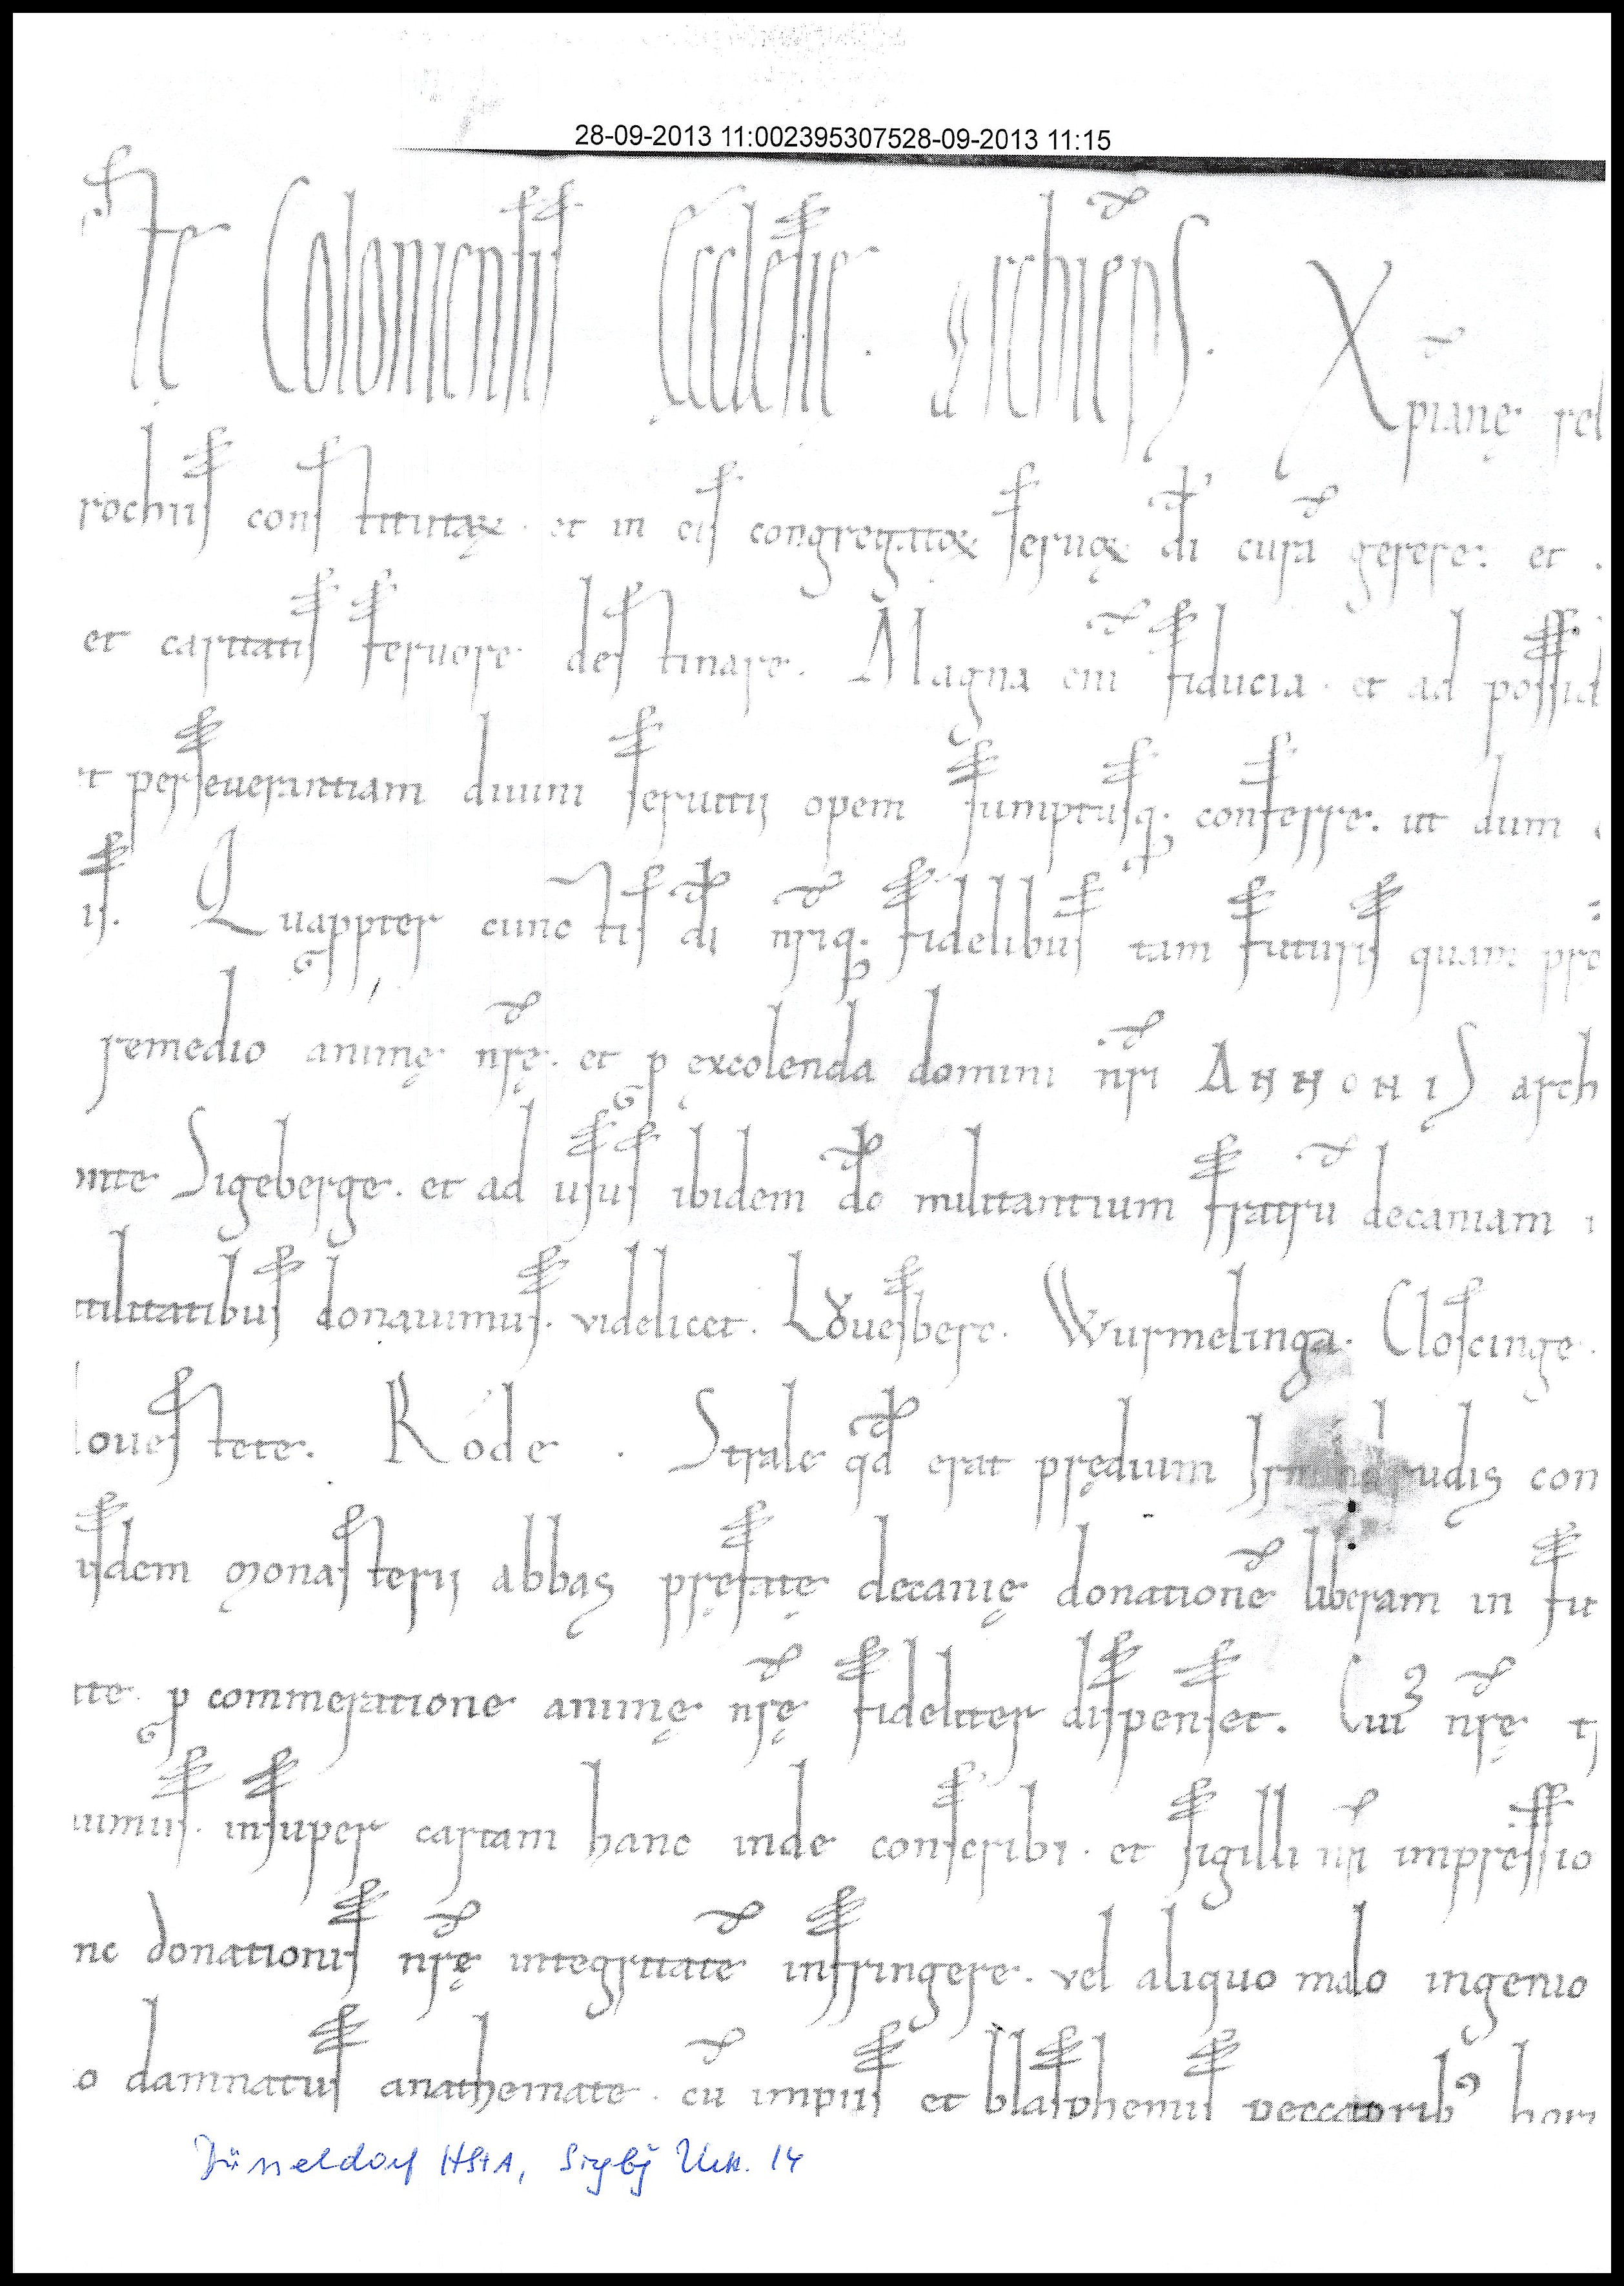 28-09-2013 11:002395307528-09-2013 11:15
Coloniensis Ecclesie. Archiep̄s. Xp̄ianę rel
rochiis constitutaꝝ. et in eis congregatoꝝ seruoꝝ d̄i curā gerere: et
et caritatis feruore destinare. Magna eni̅ fiducia. et ad possid
et perseuerantiam diuini seruitii opem sumptusq; conferre. ut dum
is. Quapꝓter cunctis d̄i nr̄isq; fidelibus tam futuris quam pre
remedio animę nr̄ę. et ꝓ excolenda domini nr̄i ANNONIS arch
monte Sigeberge. et ad usus ibidem d̄o militantium fratrū decaniam
utilitatibus donauimus. videlicet. Lǒuesbere. Wurmelinga. Closcinge.
louestete. Róde. Strale qd̄ erat prędium Irmindrudis con
eiusdem monasterii abbas pręfatę decanię donationē liberam in fu
ꝓ commeratione animę nr̄ę fideliter dispenset. Cui⁹ nr̄ę t
uimus. insuper cartam hanc inde conscribi. et sigilli nr̄i impressio
nc donationis nr̄ę integritatē infringere. vel aliquo malo ingenio
o damnatus anathemate. cū impiis et blasphemis peccatorib⁹ hor
Düsseldorf HStA, Siegbg Urk. 14